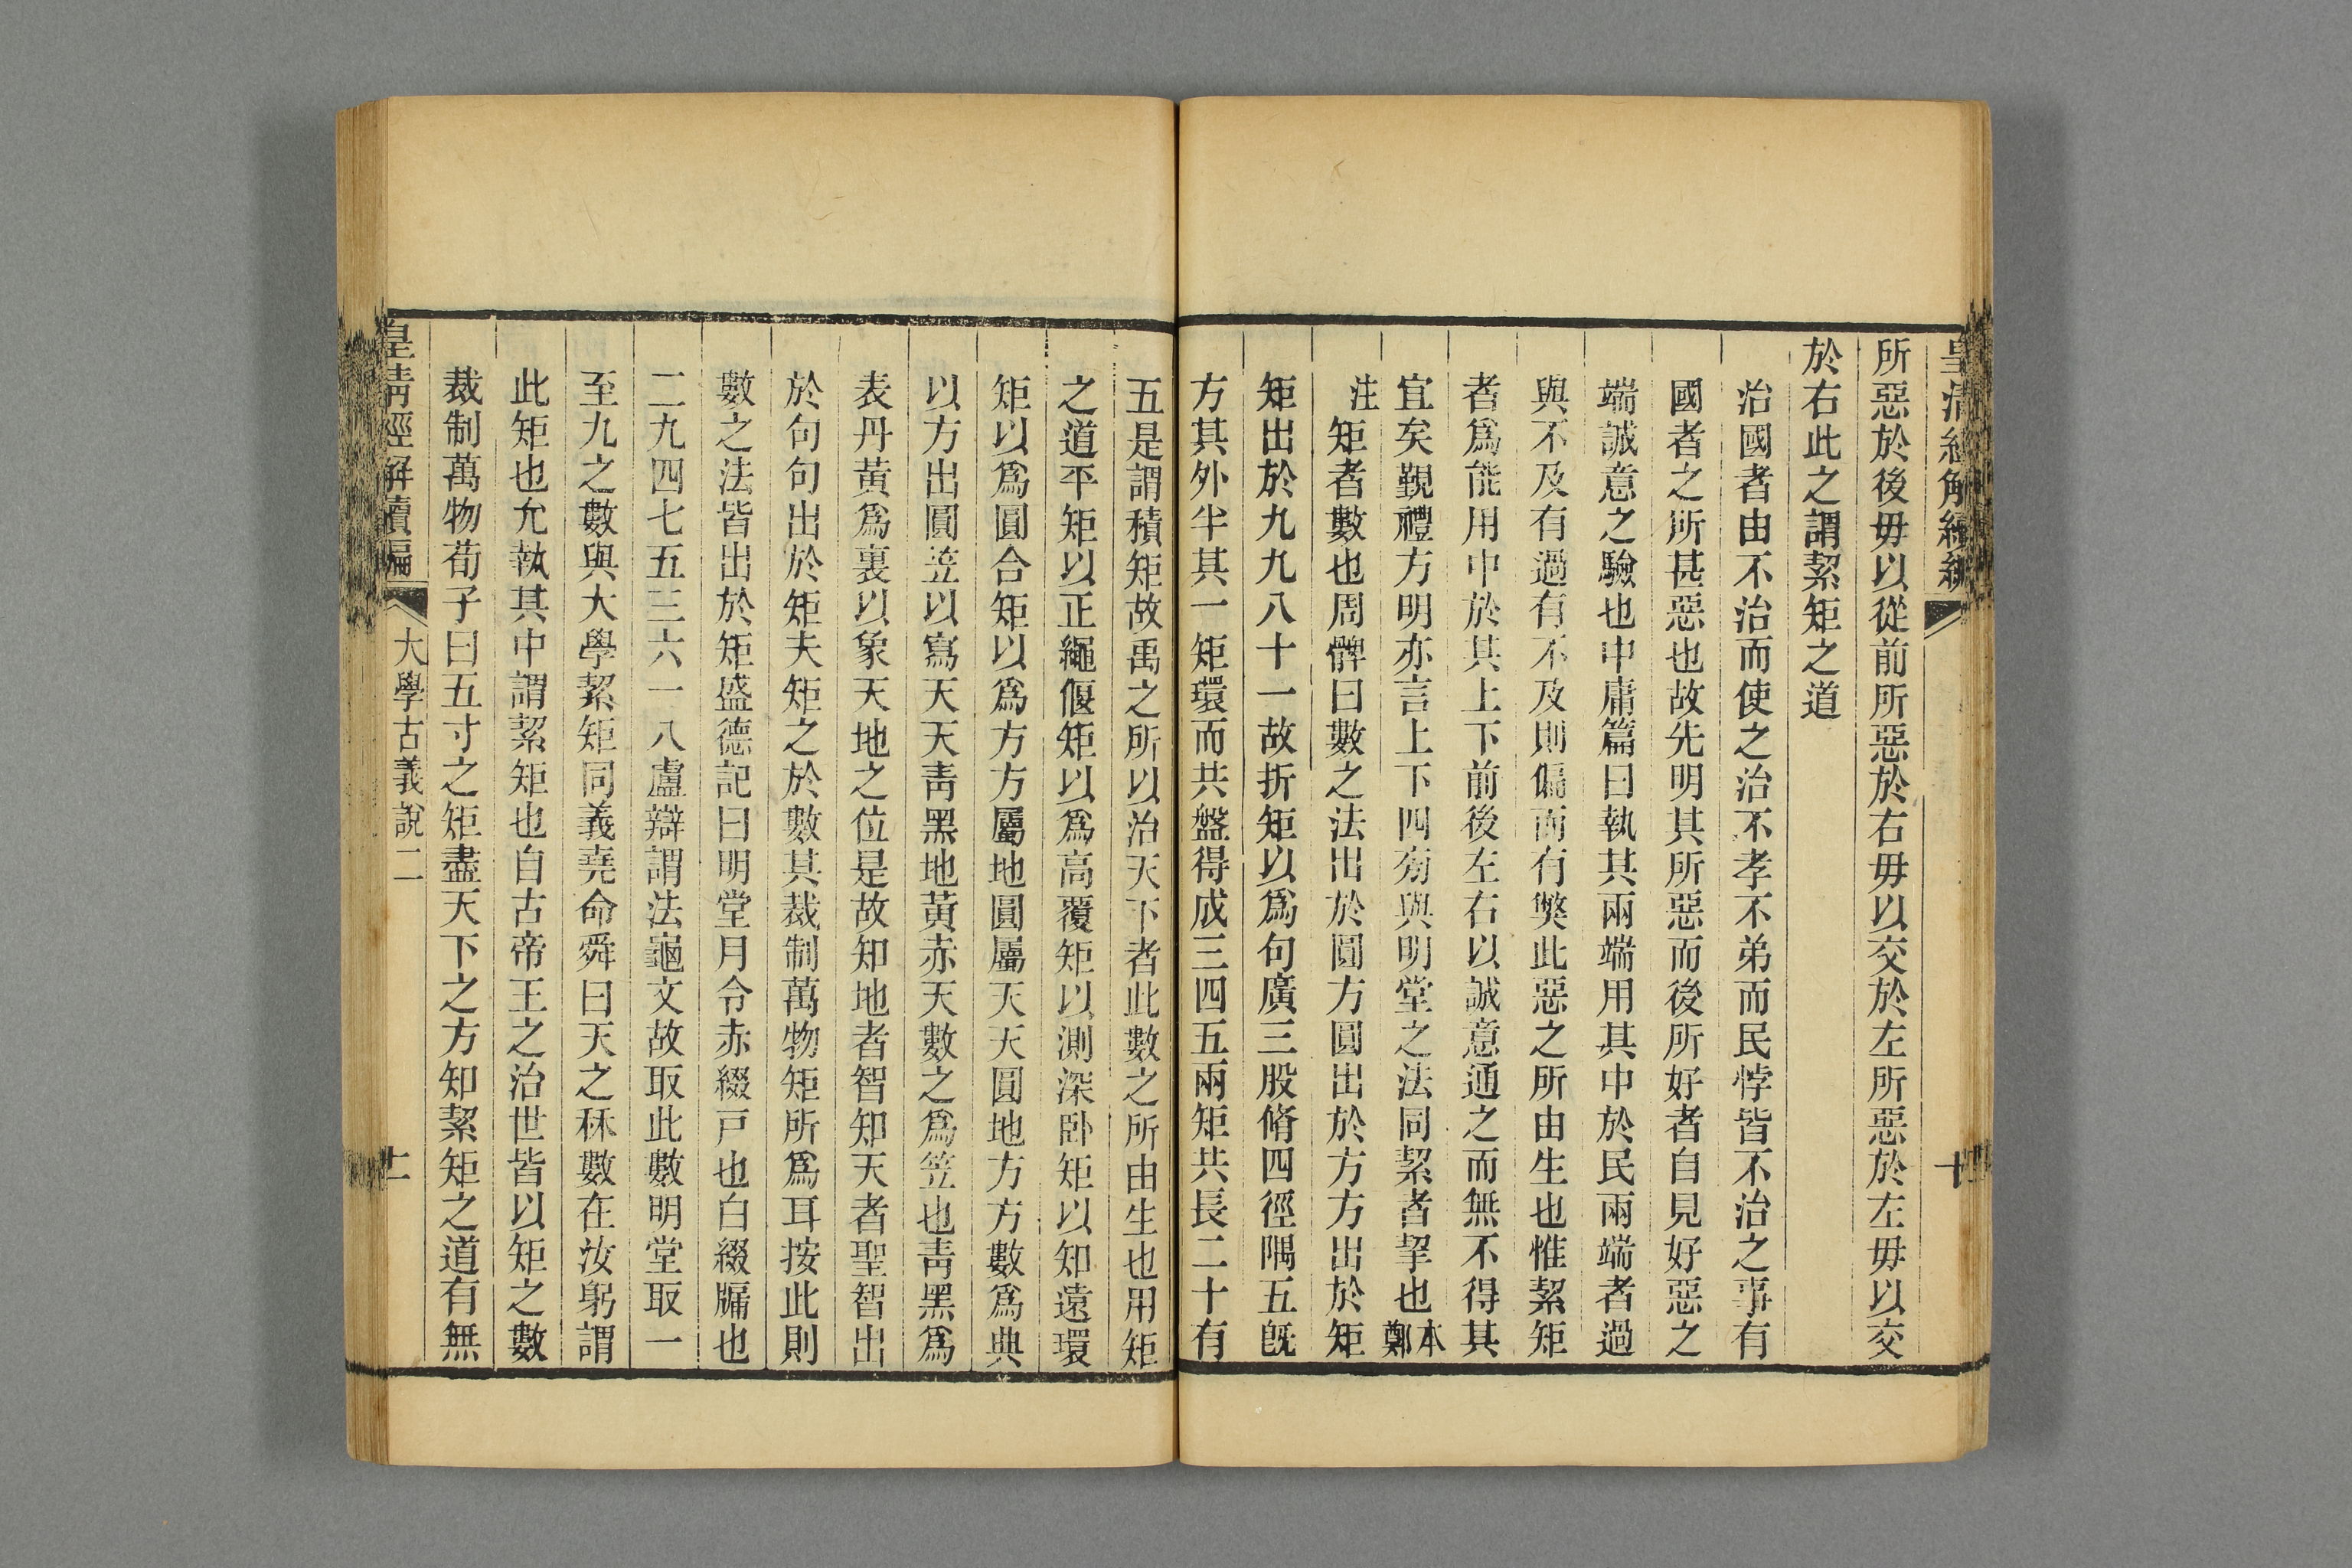 所惡於後毋以從前所惡於右毋以交於左所惡於左毋以交
於右此之謂絜矩之道
治國者由不治而使之治不孝不弟而民悖皆不治之事有
國者之所甚惡也故先明其所惡而後所好者自見好惡之
端誠意之驗也中庸篇曰執其兩端用其中於民兩端者過
與不及有過有不及則偏而有獘此惡之所由生也惟絜矩
者爲能用中於其上下前後左右以誠意通之而無不得其
宜矣覲禮方明亦言上下四㫄與明堂之法同絜者挈也本鄭
注矩者數也周髀曰數之法出於圓方圓出於方方出於矩
矩出於九九八十一故折矩以爲句廣三股脩四徑隅五旣
方其外半其一矩環而共盤得成三四五兩矩共長二十有
五是謂積矩故禹之所以治天下者此數之所由生也用矩
之道平矩以正繩偃矩以爲高覆矩以測深卧矩以知遠環
矩以爲圓合矩以爲方方屬地圓屬天天圓地方方數爲典
以方出圓笠以寫天天青黑地黃赤天數之爲笠也青黑爲
表丹黃爲裏以象天地之位是故知地者智知天者聖智出
於句句出於矩夫矩之於數其裁制萬物矩所爲耳按此則
數之法皆出於矩盛德記曰明堂月令赤綴戸也白綴牖也
二九四七五三六一八盧辯謂法龜文故取此數明堂取一
至九之數與大學絜矩同義堯命舜曰天之秝數在汝躬謂
此矩也允執其中謂絜矩也自古帝王之治世皆以矩之數
裁制萬物荀子曰五寸之矩盡天下之方知絜矩之道有無
皇清經解續編
大學古義說二